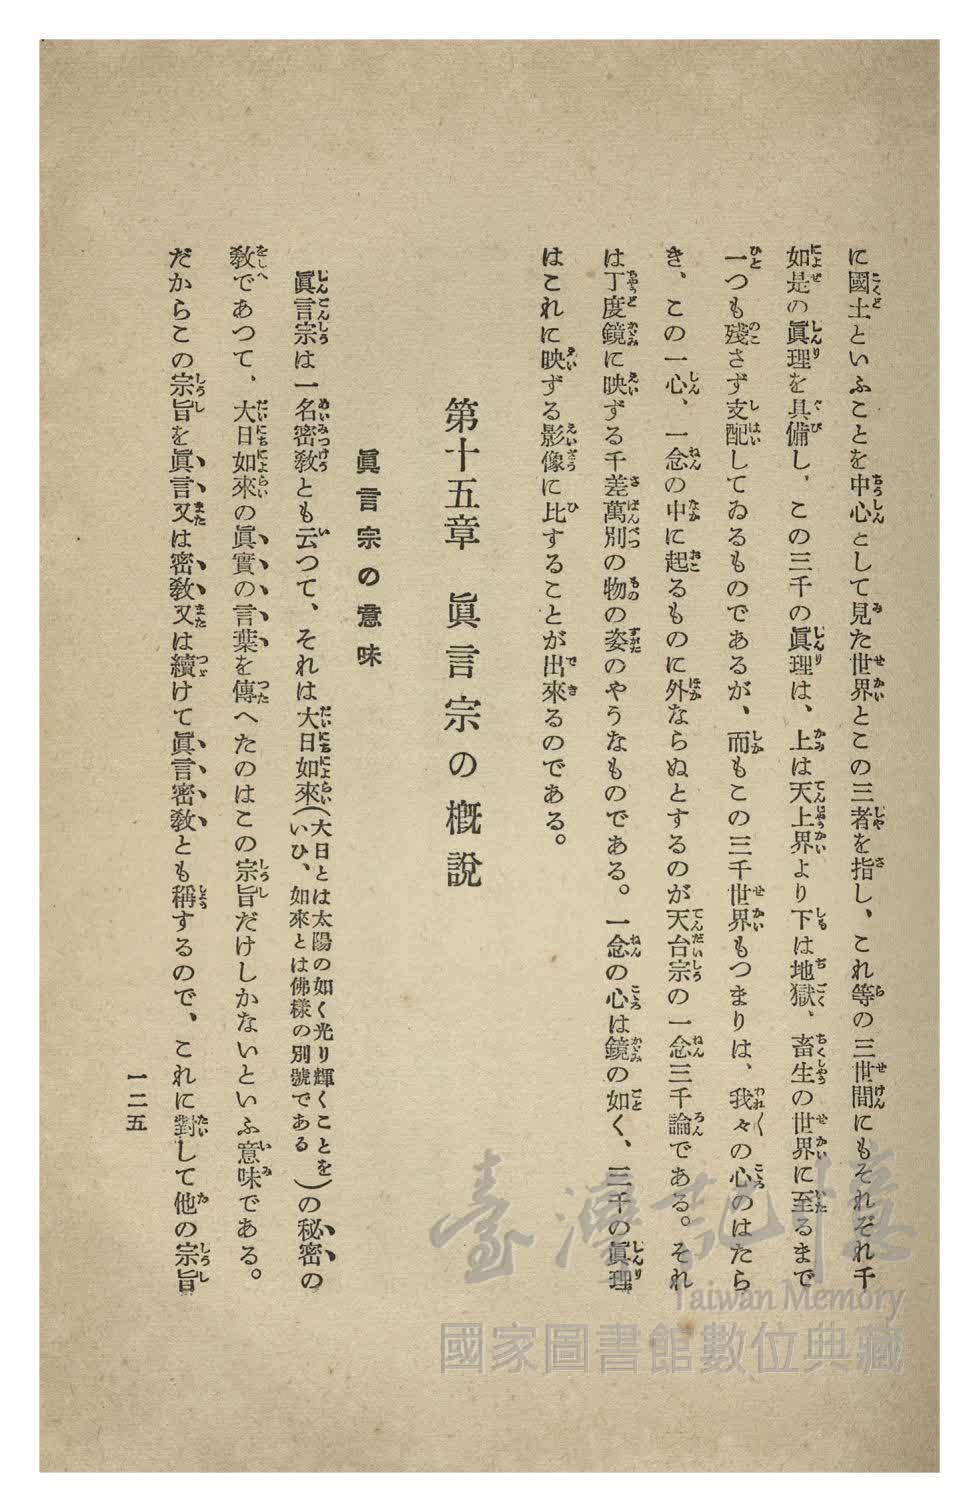 に國土といふことを中心として見た世界とこの三者を指し、これ等の三世間にもそれぞれ千
如是の眞理を具備し、この三千の眞理は、上は天上界より下は地獄、畜生の世界に至るまで
一つも殘さず支配してゐるものであるが、而もこの三千世界もつまりは、我々の心のはたら
き、この一心、一念の中に起るものに外ならぬとするのが天台宗の一念三千論である。それ
は丁度鏡に映ずる千差萬別の物の姿のやうなものである。一念の心は鏡の如く、三千の眞理
はこれに映ずる影像に比することが出來るのである。
第十五章 眞言宗の概說
眞言宗の意味
眞言宗は一名密敎とも云つて、それは大日如來(大日とは太陽の如く光り輝くことをいひ、如來とは佛樣の別號である)の秘密の
敎であつて、大日如來の眞實の言葉を傳へたのはこの宗旨だけしかないといふ意味である。
だからこの宗旨を眞言又は密敎又は續けて眞言密敎とも稱するので、これに對して他の宗旨
一二五
臺灣記憶
Taiwan Memory
國家圖書館數位典藏